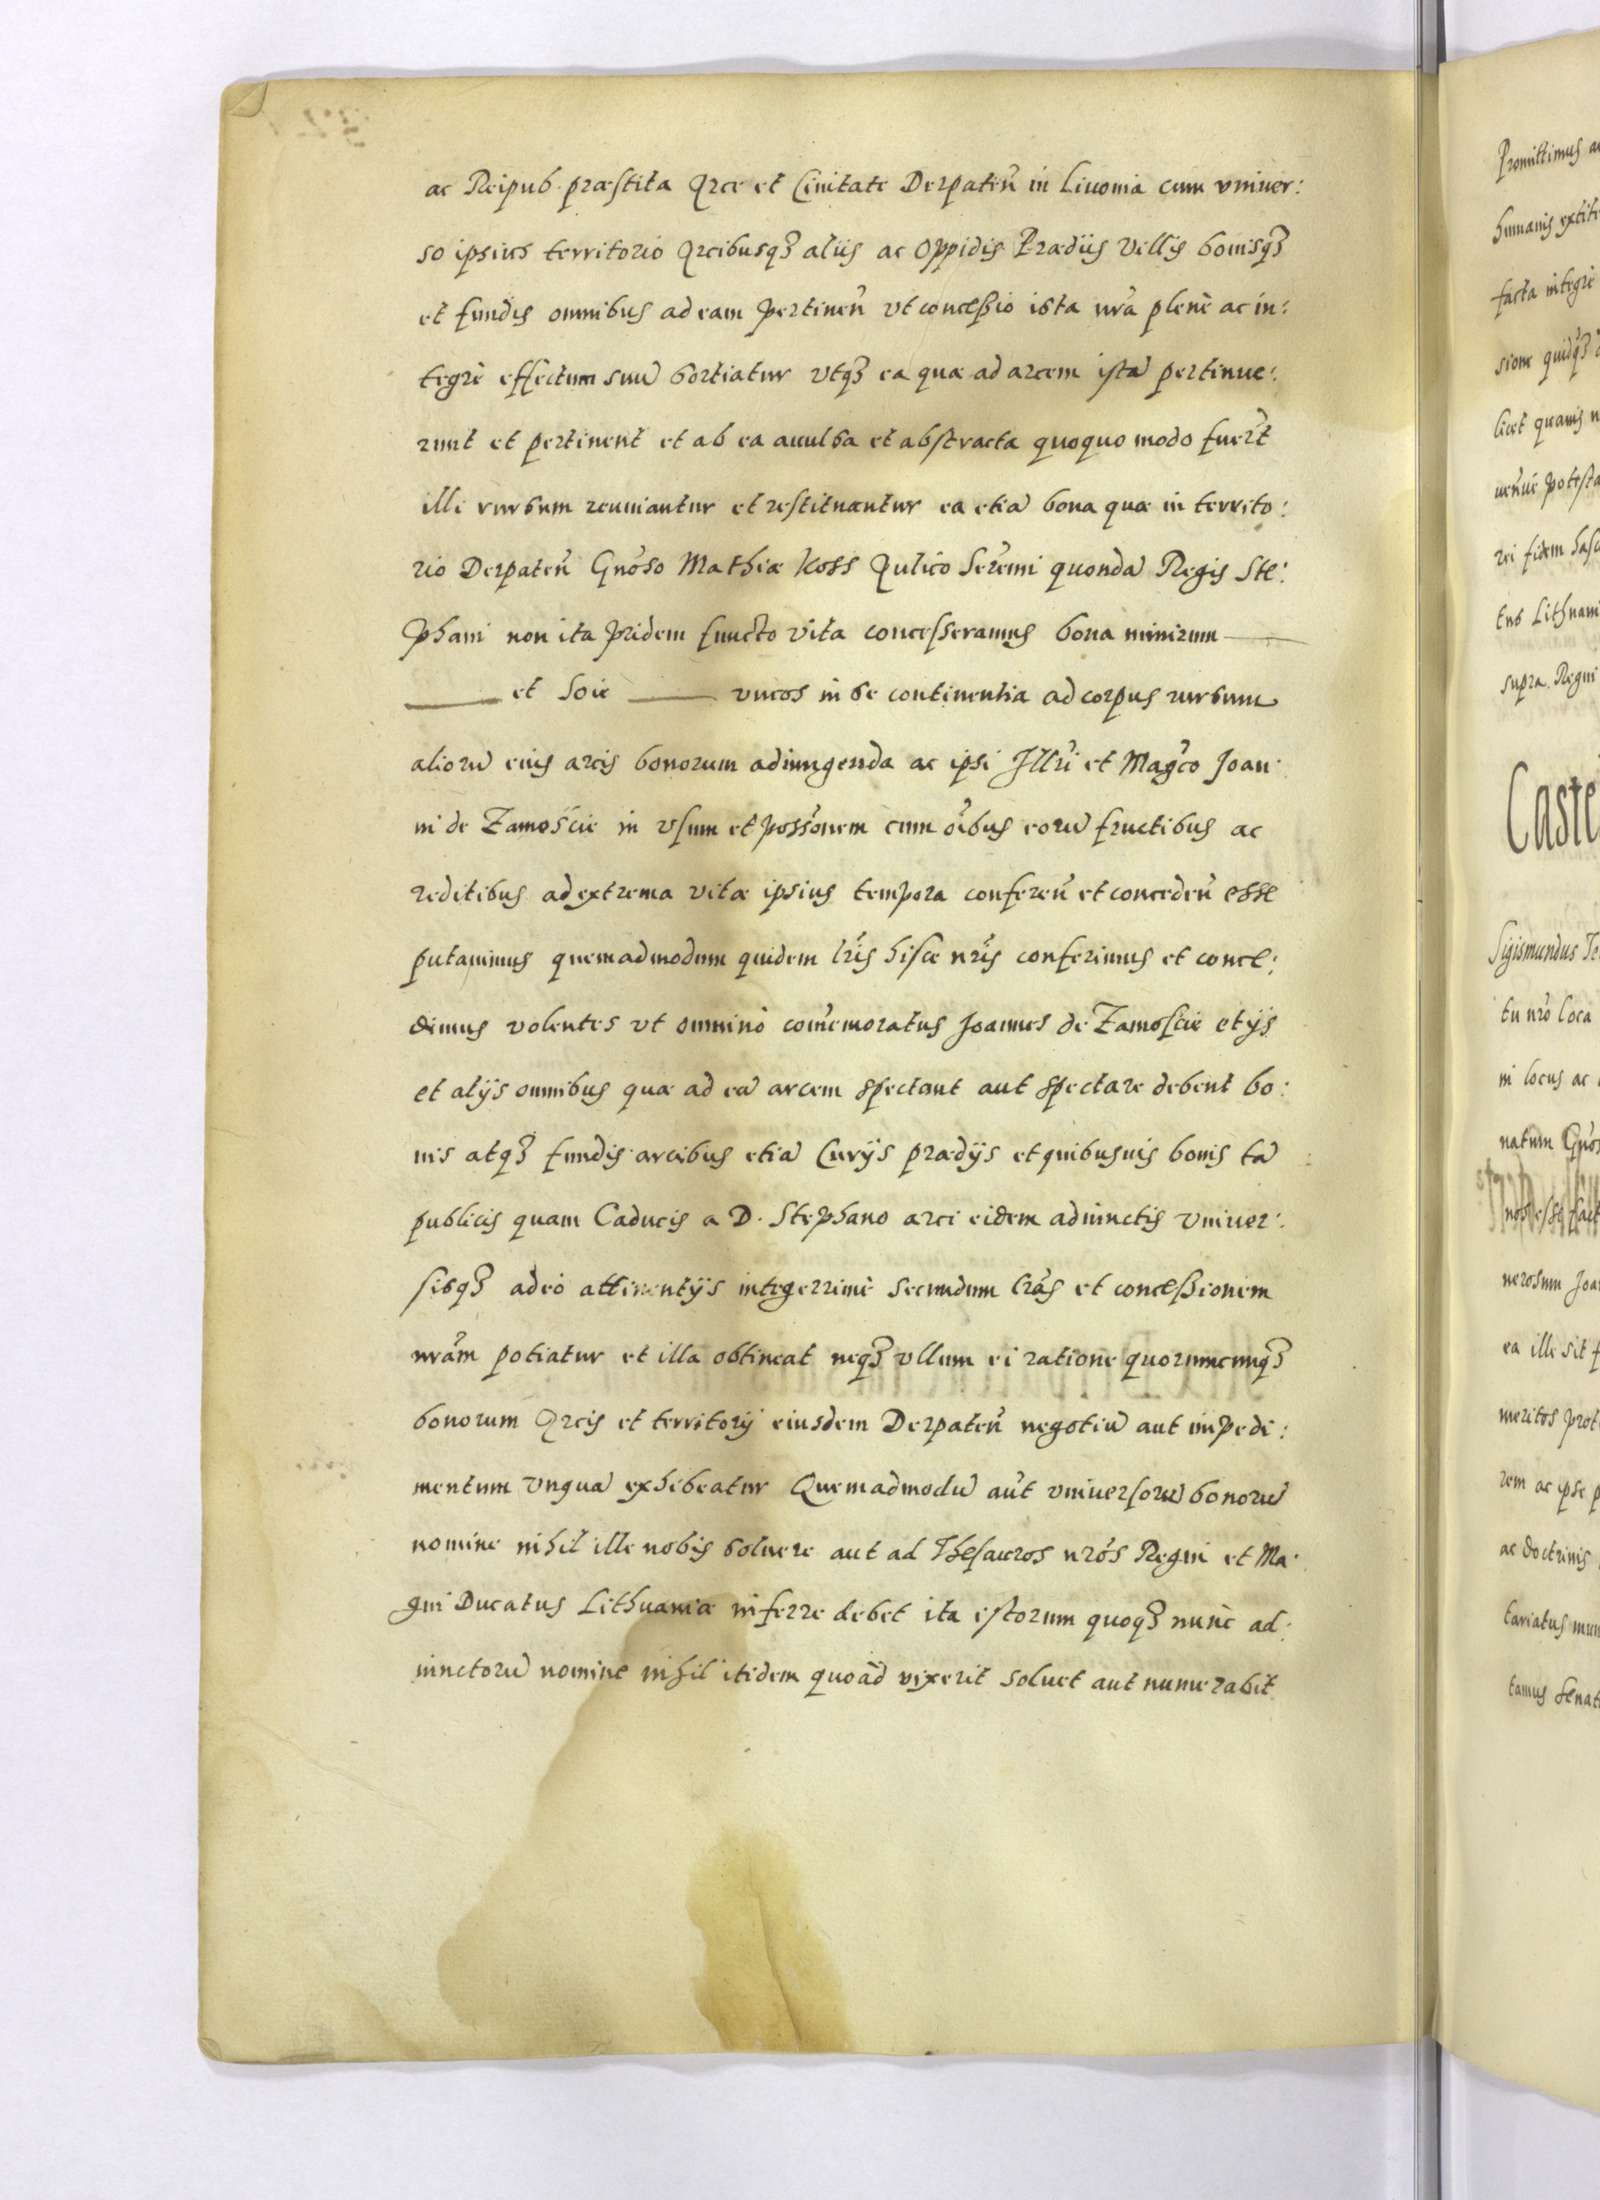 ac Reipub. præstita Arce et Ciuitate Derpateñ in Liuonia cum vniuer:
so ipsius territorio Arcibusq3 aliis ac Oppidis Prædiis Villis bonisq3
et fundis omnibus ad eam pertineñ vt concessio ista nr̃a plenè ac in:
tegrè effectum suũ sortiatur vtq3 ea quæ ad arcem istã pertinue:
runt et pertinent et ab ea auulsa et abstracta quoquo modo fuer̃t
illi rursum reuniantur et restituantur ea etiã bona quæ in territo:
rio Derpateñ Gñoso Mathiæ Koss Aulico Serẽmi quondã Regis Ste:
phani non ita pridem functo vita concesseramus bona nimirum ——
—— et Soie —— vncos in se continentia ad corpus rursum
aliorũ eius arcis bonorum adiungenda ac ipsi Illr̃i et Mag̃co Joan:
ni de Zamoscie in vsum et possõnem cum oĩbus eorũ fructibus ac
reditibus ad extrema vitæ ipsius tempora confereñ et concedeñ esse
putauimus quemadmodum quidem lr̃is hisce nr̃is conferimus et conce:
dimus volentes vt omninò com̃emoratus Joannes de Zamoscie et ijs
et alijs omnibus quæ ad eã arcem spectant aut spectare debent bo:
nis atq3 fundis arcibus etiã Curijs prædijs et quibusuis bonis tã
publicis quam Caducis a D. Stephano arci eidem adiunctis vniuer:
sisq3 adeò attinentijs integerrimè secundum lr̃as et concessionem
nr̃am potiatur et illa obtineat neq3 vllum ei ratione quorumcunq3
bonorum Arcis et territorij eiusdem Derpateñ negotiũ aut impedi:
mentum vnquã exhibeatur Quemadmodũ aũt vniuersorũ bonorũ
nomine nihil ille nobis soluere aut ad Thesauros nr̃os Regni et Ma:
gni Ducatus Lithuaniæ inferre debet ita istorum quoq3 nunc ad:
iunctorũ nomine nihil itidem quoàd vixerit soluet aut numerabit
Promittimus
humanis
facta integrè
sione
licet quauis
potesta
rei fidem
tus Lithuani
supra. Regni
Caste
Sigismundus
tu nr̃o loca
ni locus ac
natum
nerosum Joa
ea ille sit
meritos prot
rem ac ipse
ac doctrinis
tariatus mun
tamus Senat